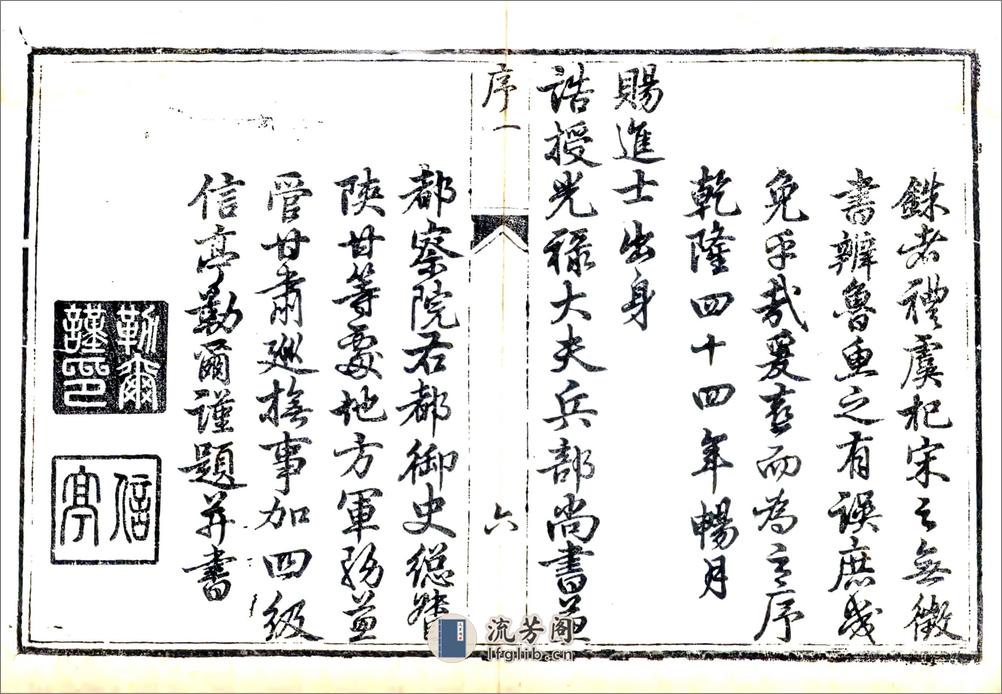 錄考禮虞杞宋之無徵
書辨魯魚之有誤庶或
免乎哉爰喜而為之序
乾隆四十四年暢月
賜進士出身
誥授光祿大夫兵部尚書兼
序一
六
都察院右都御史總督
陝甘等處地方軍務兼
管甘肅巡撫事加四級
信亭勒爾謹題并書
勒爾
謹印
信亭
流芳阁
lfglib.cn